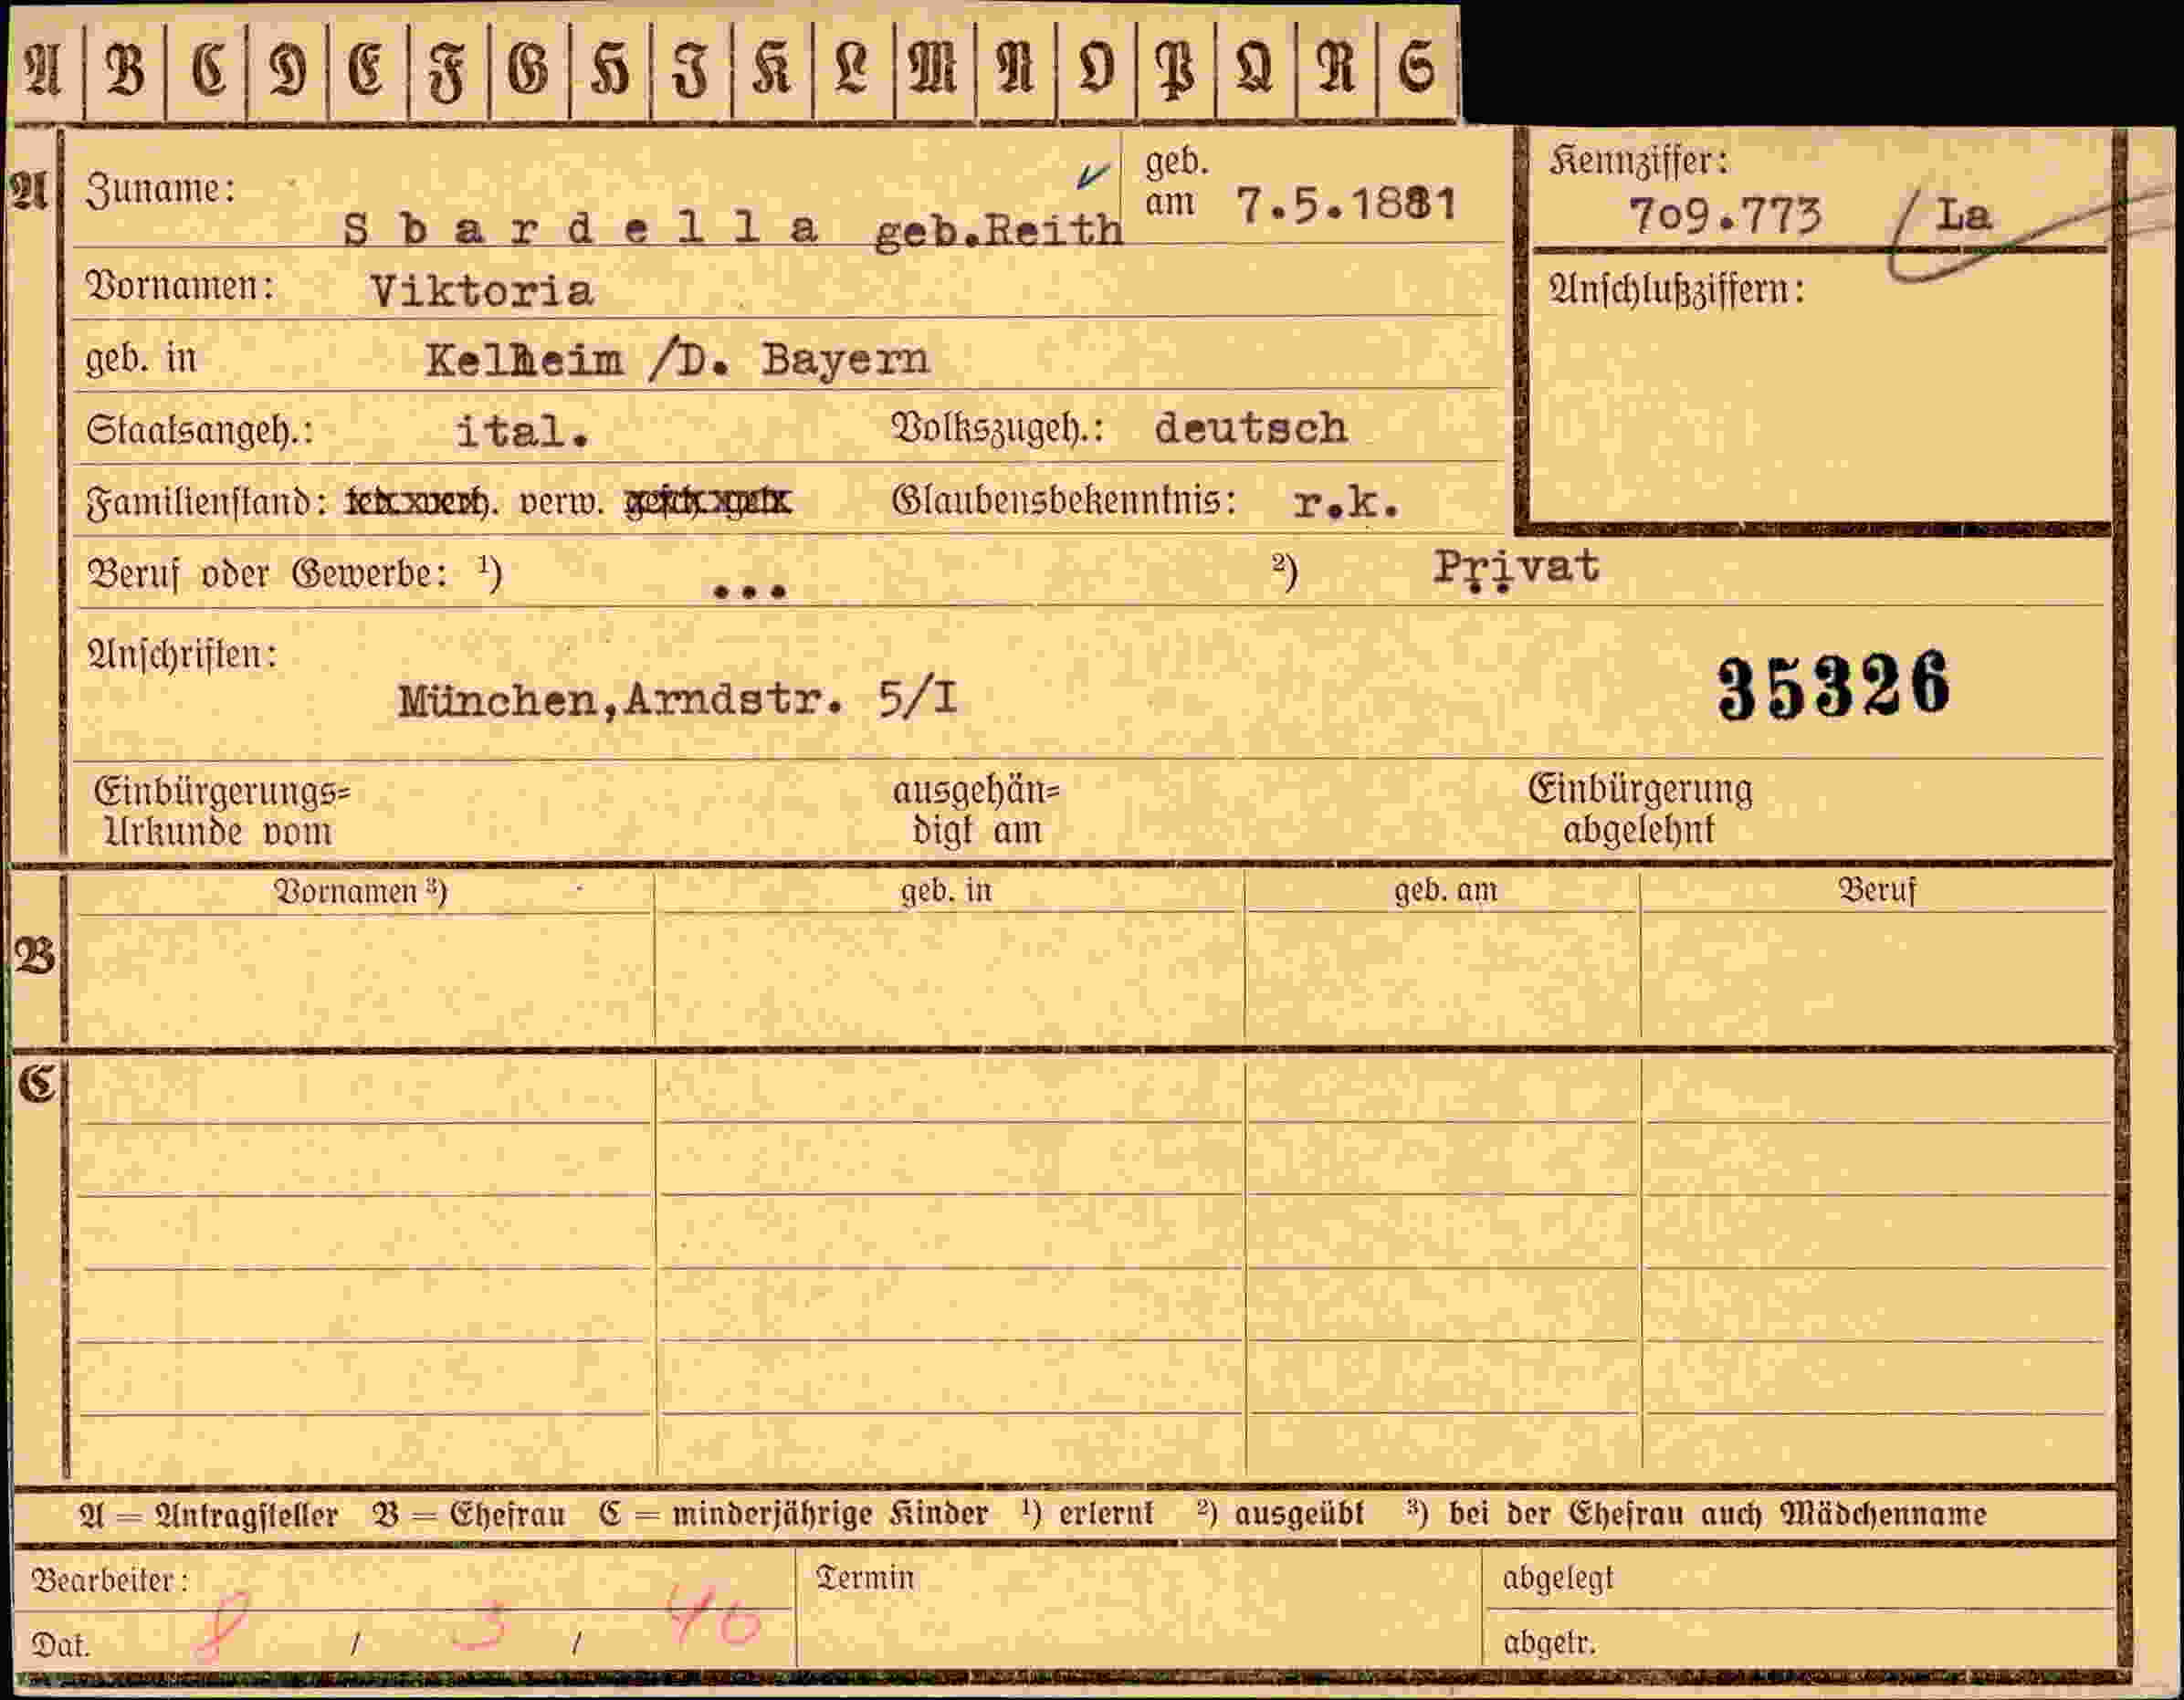 A B C D E F G H I K L M N O P Q R S
A Zuname: Sbardella geb.Reith geb. am 7.5.1881 Kennziffer: 709.773 / La
Vornamen: Viktoria Anschlußziffern:
geb. in Kelheim /D. Bayern
Staatsangeh.: ital. Volkszugeh.: deutsch
Familienstand: verw. Glaubensbekenntnis: r.k.
Beruf oder Gewerbe: ¹) ... ²) Privat
Anschriften:
München,Arndstr. 5/I 35326
Einbürgerungs= ausgehän= Einbürgerung
Urkunde vom digt am abgelehnt
Vornamen ³) geb. in geb. am Beruf
B
C
A = Antragsteller B = Ehefrau C = minderjährige Kinder ¹) erlernt ²) ausgeübt ³) bei der Ehefrau auch Mädchenname
Bearbeiter: Termin abgelegt
Dat. 8 / 3 / 40 abgetr.